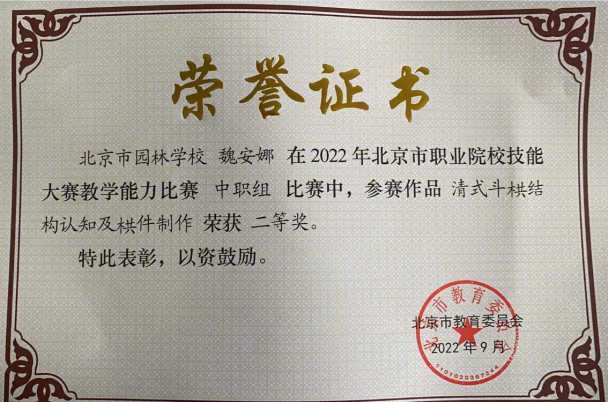 荣誉证书
北京市园林学校 魏安娜 在2022年北京市职业院校技能
大赛教学能力比赛 中职组 比赛中，参赛作品 清式斗栱结
构认知及栱件制作 荣获 二等奖。
特此表彰，以资鼓励。
北京市教育委员会
2022年9月
北京市教育委员会
1101020367244